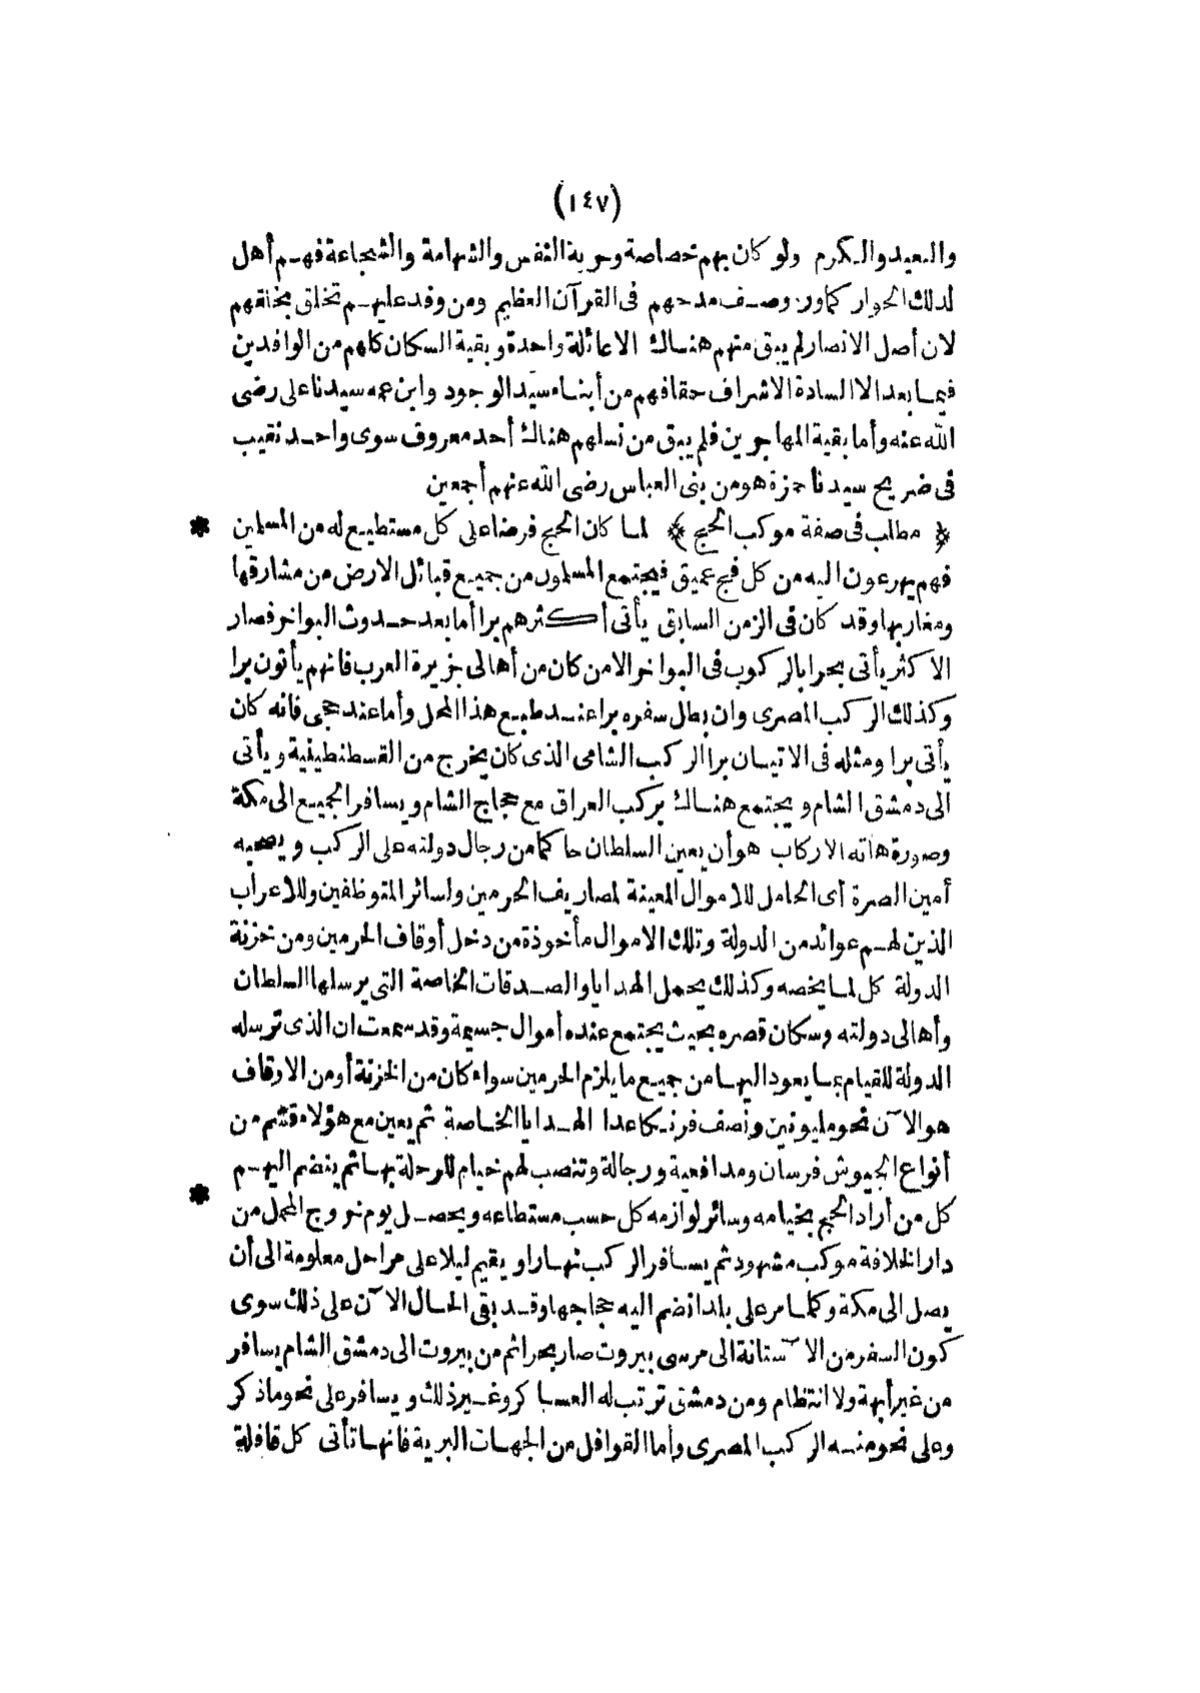 (١٤٧)
والبعيد والكرم ولو كان بهم خصاصة وحرية النفس والشهامة والشجاعة فهم أهل
لذلك الجوار كما ورد وصف مدحهم فى القرآن العظيم ومن وفد عليهم تخلق بخلقهم
لان أصل الانصار لم يبق منهم هناك الا عائلة واحدة وبقية السكان كلهم من الوافدين
فيما بعد الا السادة الاشراف حقا فهم من أبناء سيد الوجود وابن عمه سيدنا على رضى
الله عنه وأما بقية المهاجرين فلم يبق من نسلهم هناك أحد معروف سوى واحد نقيب
فى ضريح سيدنا حمزة هو من بنى العباس رضى الله عنهم أجمعين
﴿ مطلب فى صفة موكب الحج ﴾ لما كان الحج فرضا على كل مستطيع له من المسلمين *
فهم يهرعون اليه من كل فج عميق فيجتمع المسلمون من جميع قبائل الارض من مشارقها
ومغاربها وقد كان فى الزمن السابق يأتى أكثرهم برا أما بعد حدوث البواخر فصار
الاكثر يأتى بحرا بالركوب فى البواخر الا من كان من أهالى جزيرة العرب فانهم يأتون برا
وكذلك الركب المصرى وان بطل سفره برا عند طبع هذا المحل وأما عند حجى فانه كان
يأتى برا ومثله فى الاتيان برا الركب الشامى الذى كان يخرج من القسطنطينية ويأتى
الى دمشق الشام ويجتمع هناك بركب العراق مع حجاج الشام ويسافر الجميع الى مكة
وصورة هاته الاركاب هو أن يعين السلطان حاكما من رجال دولته على الركب ويصحبه
أمين الصرة أى الحامل للاموال المعينة لمصاريف الحرمين ولسائر المتوظفين وللاعراب
الذين لهم عوائد من الدولة وتلك الاموال مأخوذة من دخل أوقاف الحرمين ومن خزنة
الدولة كل لما يخصه وكذلك يحمل الهدايا والصدقات الخاصة التى يرسلها السلطان
وأهالى دولته وسكان قصره بحيث يجتمع عنده أموال جسيمة وقد سمعت ان الذى ترسله
الدولة للقيام بما يعود اليها من جميع ما يلزم الحرمين سواء كان من الخزنة أو من الاوقاف
هو الآن نحو مليونين ونصف فرنكا عدا الهدايا الخاصة ثم يعين مع هؤلاء قسم من
أنواع الجيوش فرسان ومدافعية ورجالة وتنصب لهم خيام للرحلة بها ثم ينضم اليهم
كل من أراد الحج بخيامه وسائر لوازمه كل حسب مستطاعه ويحصل يوم خروج المحمل من *
دار الخلافة موكب مشهود ثم يسافر الركب نهارا ويقيم ليلا على مراحل معلومة الى أن
يصل الى مكة وكلما مر على بلد انضم اليه حجاجها وقد بقى الحال الآن على ذلك سوى
كون السفر من الآستانة الى مرسى بيروت صار بحرا ثم من بيروت الى دمشق الشام يسافر
من غير أبهة ولا انتظام ومن دمشق ترتب له العساكر وغير ذلك ويسافر على نحو ما ذكر
وعلى نحو منه الركب المصرى وأما القوافل من الجهات البرية فانها تأتى كل قافلة